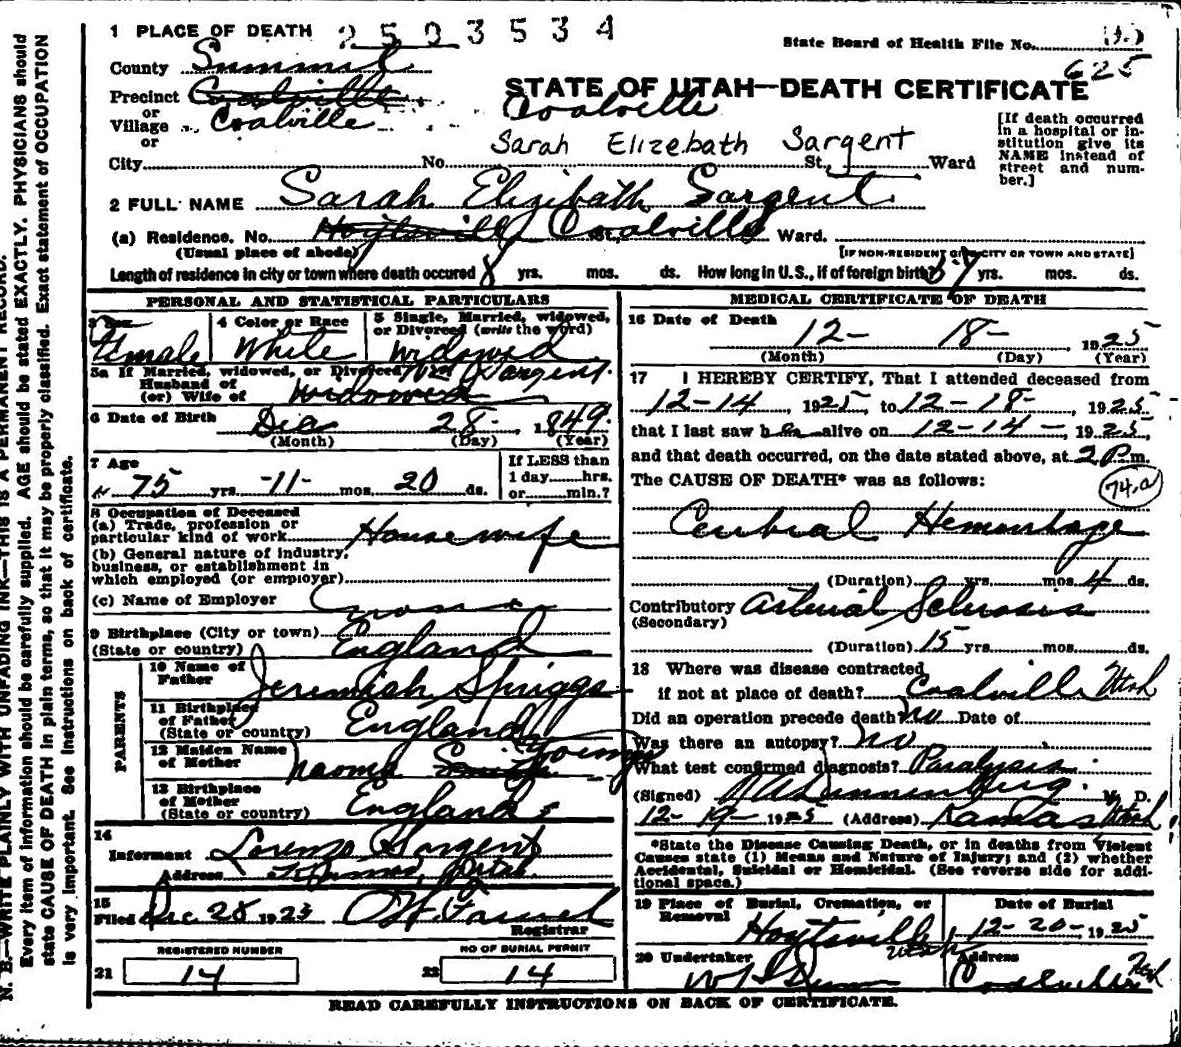 1 PLACE OF DEATH 2503534
State Board of Health File No.
625
County Summit
STATE OF UTAH—DEATH CERTIFICATE
Precinct Coalville Coalville
or
Village Coalville
or
[If death occurred in a hospital or institution give its NAME instead of street and number.]
Sarah Elizebath Sargent
City No. St., Ward
2 FULL NAME Sarah Elizibath Sargent
(a) Residence. No. Hoytsville Coalville Ward.
(Usual place of abode) [IF NON-RESIDENT GIVE CITY OR TOWN AND STATE]
Length of residence in city or town where death occured 8 yrs. mos. ds. How long in U.S., if of foreign birth? 57 yrs. mos. ds.
PERSONAL AND STATISTICAL PARTICULARS
3 Sex Female
4 Color or Race White
5 Single, Married, widowed, or Divorced (write the word) Widowed
5a If Married, widowed, or Divorced Wm Sargent
Husband of
(or) Wife of Widowed
6 Date of Birth Dec 28 1849
(Month) (Day) (Year)
7 Age
75 yrs 11 mos. 20 ds.
If LESS than 1 day hrs. or min.?
8 Occupation of Deceased
(a) Trade, profession or particular kind of work Housewife
(b) General nature of industry, business, or establishment in which employed (or employer)
(c) Name of Employer none
9 Birthplace (City or town)
(State or country) England
PARENTS
10 Name of Father Jeremiah Spriggs
11 Birthplace of Father (State or country) England
12 Maiden Name of Mother Naomi Smith Young
13 Birthplace of Mother (State or country) England
14
Informant Lorenzo Sargent
Address
15
Filed Dec 28 1925
Registrar
REGISTERED NUMBER NO OF BURIAL PERMIT
21 14 22 14
MEDICAL CERTIFICATE OF DEATH
16 Date of Death 12- 18- 1925
(Month) (Day) (Year)
17 I HEREBY CERTIFY, That I attended deceased from
12-14, 1925 to 12-18-, 1925
that I last saw her alive on 12-14-, 1925,
and that death occurred, on the date stated above, at 2 P.m.
The CAUSE OF DEATH* was as follows:
74.a
Cerebral Hemorrhage
(Duration) yrs mos 4 ds.
Contributory Arterial Sclerosis
(Secondary)
(Duration) 15 yrs. mos. ds.
18 Where was disease contracted
if not at place of death? Coalville Utah
Did an operation precede death? No Date of
Was there an autopsy? No
What test confirmed diagnosis? Paralysis
(Signed) M. D.
12-19- 1925 (Address) Kamas Utah
*State the Disease Causing Death, or in deaths from Violent Causes state (1) Means and Nature of Injury; and (2) whether Accidental, Suicidal or Homicidal. (See reverse side for additional space.)
19 Place of Burial, Cremation, or Removal Hoytsville Utah
Date of Burial 12-20-1925
20 Undertaker
Address Coalville Utah
READ CAREFULLY INSTRUCTIONS ON BACK OF CERTIFICATE.
N. B.—WRITE PLAINLY WITH UNFADING INK—THIS IS A PERMANENT RECORD.
Every item of information should be carefully supplied. AGE should be stated EXACTLY. PHYSICIANS should
state CAUSE OF DEATH in plain terms, so that it may be properly classified. Exact statement of OCCUPATION
is very important. See instructions on back of certificate.